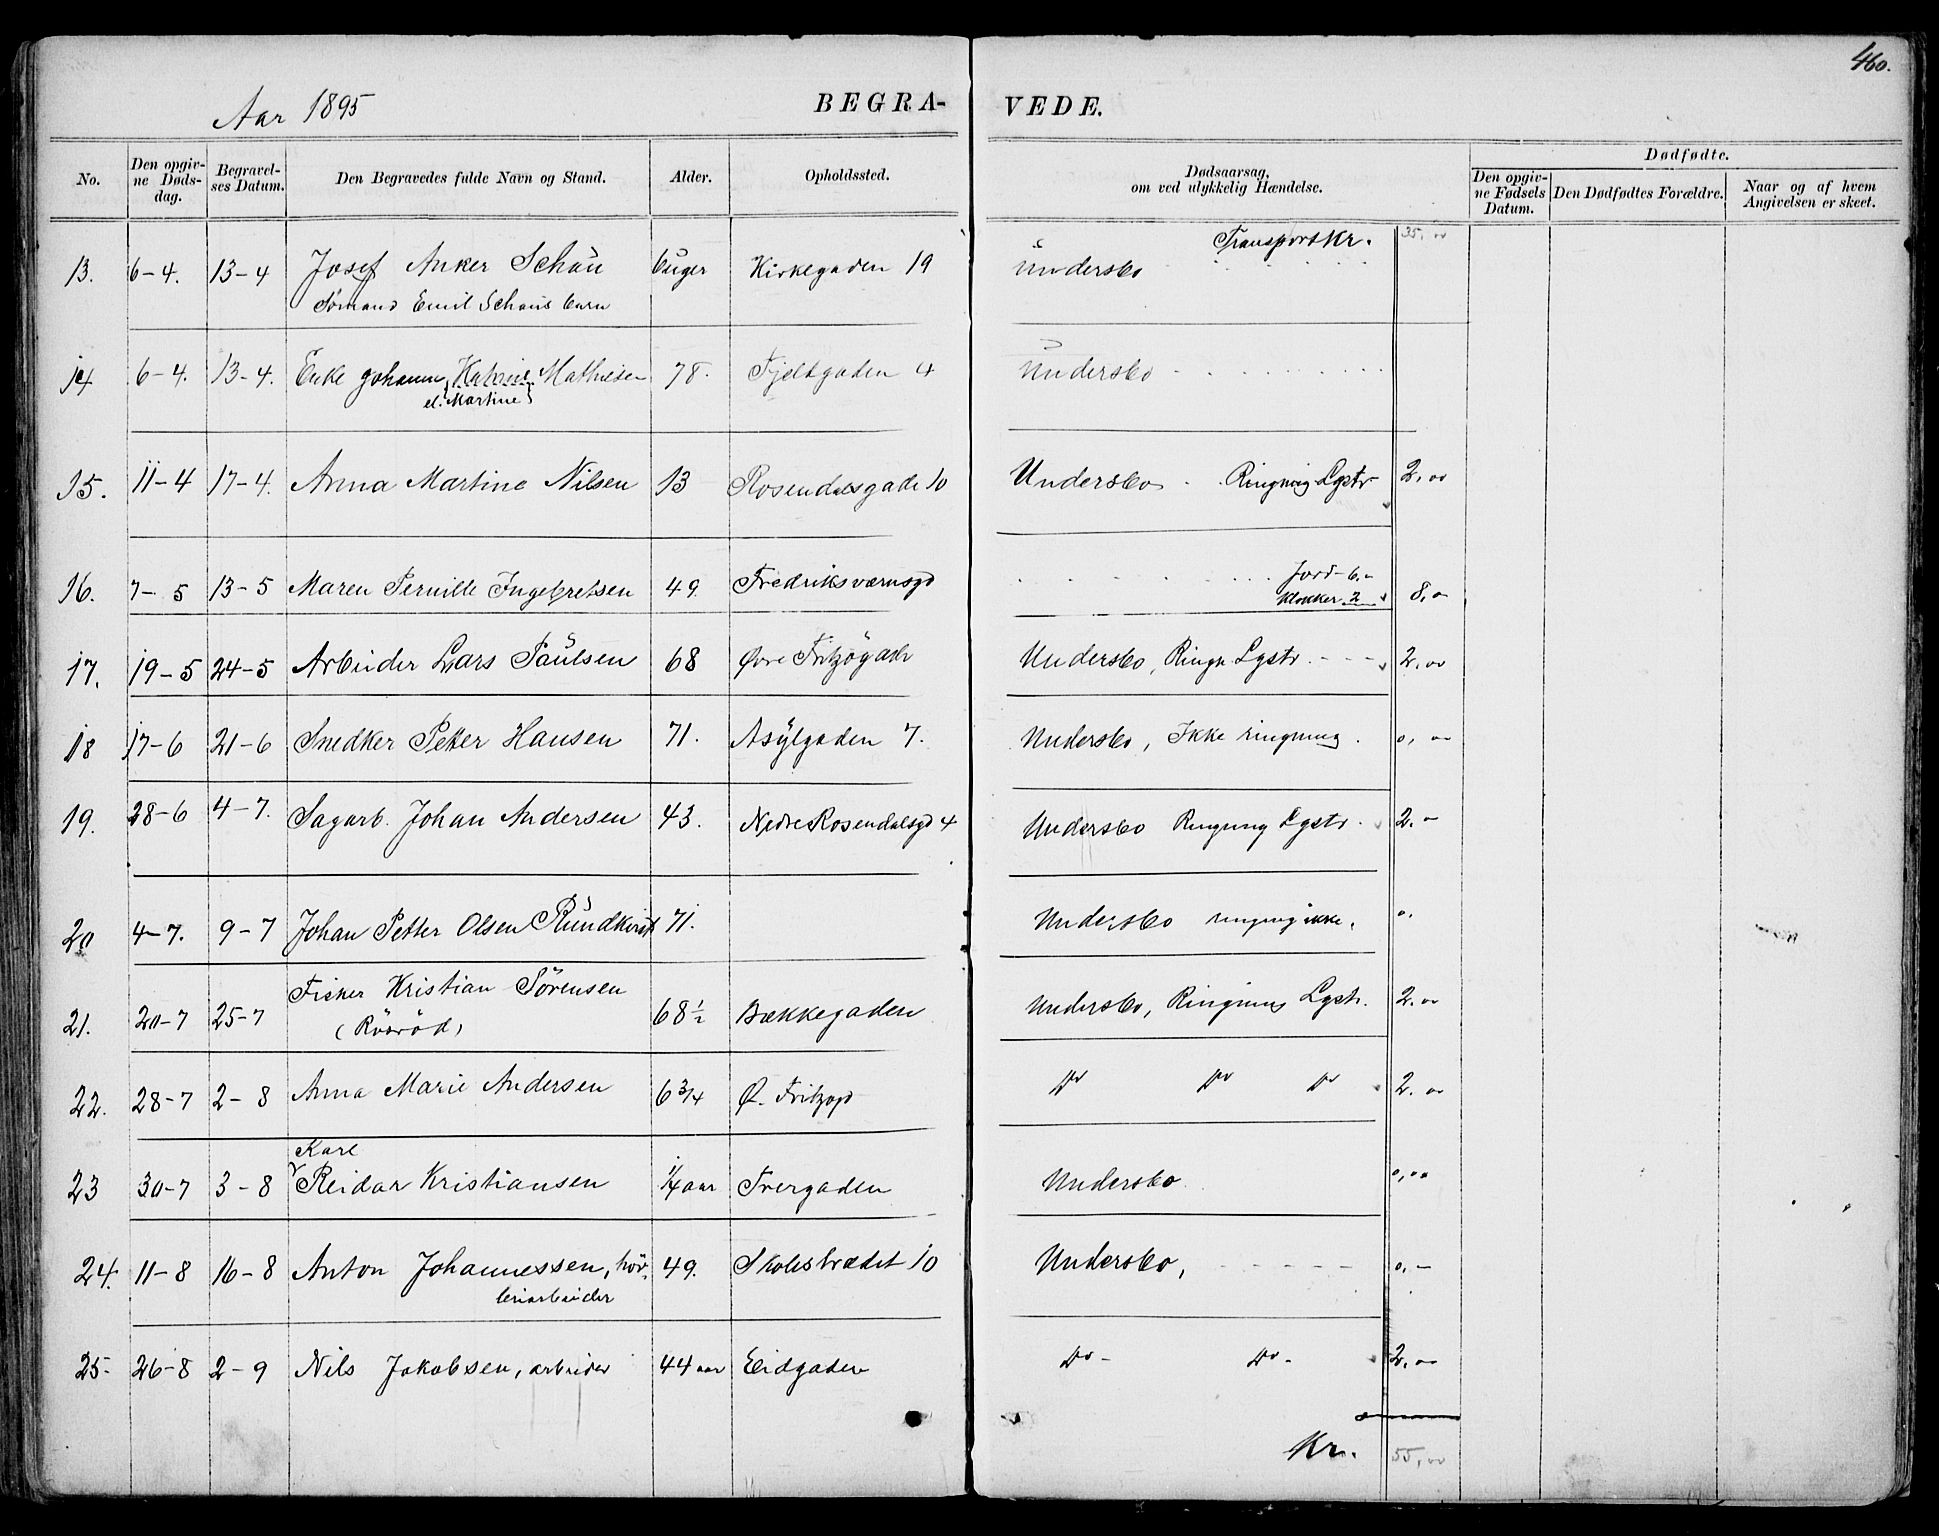 460.
Aar 1895
BEGRA- VEDE.
No. Den opgivne Døds-dag. Begravelses Datum. Den Begravedes fulde Navn og Stand. Alder. Opholdssted. Dødsaarsag, om ved ulykkelig Hændelse. Dødfødte. Den opgivne Fødsels Datum. Den Dødfødtes Forældre. Naar og af hvem Angivelsen er skeet.
Transport Kr. 35,00
13. 6-4. 13-4 Josef Anker Schau 6 uger Kirkegaden 19 Undersbo
Sømand Emil Schaus barn
14 6-4. 13-4. Enke Johanne Katrine Mathisen 78. Fjeldgaden 4 Undersbo
el. Martine
15. 11-4 17-4. Anna Martine Nilsen 13 Rosendalsgade 10 Undersbo Ringning Lystr 2,00
16. 7-5 13-5 Maren Pernille Ingebretsen 49. Fredriksværnsgd Jord-6.-
Klokker 2 8,0
17. 19-5 24-5 Arbeider Lars Paulsen 68 Øvre Fritzögade Undersbo, Ringn Lystr. 2,00
18 17-6 21-6 Snedker Petter Hansen 71. Asylgaden 7. Undersbo, Ikke ringning. 0,00
19. 28-6 4-7. Sagarb. Johan Andersen 43. Nedre Rosendalsgd 4 Undersbo Ringning Lystr. 2.-
20 4-7. 9-7 Johan Petter Olsen Rundkvist 71. Undersbo ringning ikke. 0.
21. 20-7 25-7 Fisker Kristian Sörensen 68 1/2 Bækkegaden Undersbo, Ringning Lystr. 2.00
(Röeröd)
22. 28-7 2-8 Anna Marie Andersen 6 3/4 Ø. Fritzøgd Do Do Do 2.00
Karl
23 30-7 3-8 Reidar Kristiansen 1/4 aar Tvergaden Undersbo 0,00
24. 11-8 16-8 Anton Johannessen, høv- 49. Skolestrædet 10 Undersbo, 0,-
leriarbeider
25- 26-8 2-9 Nils Jakobsen, arbeider 44 aar Eidgaden Do- Do- 2,00
Kr. 55,00